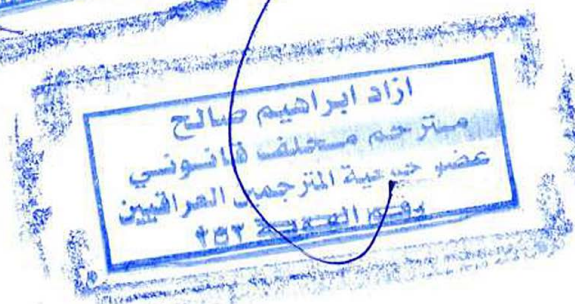 ازاد ابراهيم صالح
مترجم محلف قانوني
عضو جمعية المترجمين العراقيين
رقم العضوية ٢٥٢